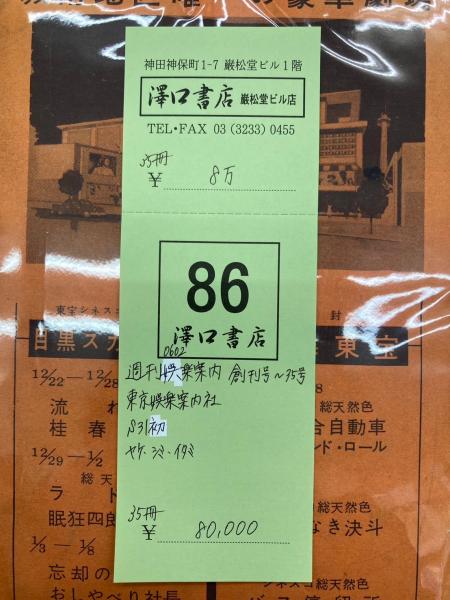 神田神保町1-7 巌松堂ビル1階
澤口書店 巌松堂ビル店
TEL・FAX 03 (3233) 0455
35冊
¥ 8万
86
澤口書店
0602
週刊娯楽案内 創刊号〜35号
東京娯楽案内社
S31初
ヤケ・シミ・イタミ
35冊
¥ 80,000
東宝シネスコ
封
目黒スカ
東宝
12/22 — 12/28
8
流れ
総天然色
桂春
合自動車
ンド・ロール
12/29 — 1/2
総天
ラド
総天然色
眠狂四郎
なき決斗
1/3 — 1/8
忘却の
シネスコ総天然色
おしゃべり社長